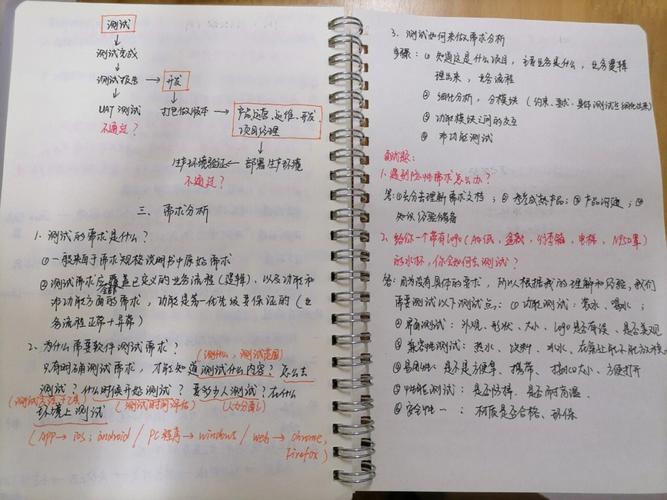 测试
测试完成
测试报告 → 开发
UAT测试 打包做版本 → 产品运营、运维、开发
项目经理
不通过？
生产环境验证 ← 部署生产环境
不通过？
三、需求分析
1. 测试的需求是什么？
①一般来自于需求规格说明书中原始需求
②测试需求应覆盖已定义的业务流程（逻辑），以及功能和
非功能方面的需求，功能是第一优先级要保证的（业
务流程正常+异常）
2. 为什么需要软件测试需求？
（测什么，测试范围）
只有明确测试需求，才能知道测试什么内容？怎么去
测试？什么时候开始测试？要多少人测试？在什么
（测试时间评估）（人力分配）
环境上测试
（App → ios；android / PC程序 → windows / web → chrome,
firefox）
3. 测试如何来做需求分析
步骤：① 知道这是什么项目，主要业务是什么，业务逻辑
理出来，业务流程
② 细化分析，分模块
③ 功能模块之间的交互
④ 非功能测试
面试题：
1. 遇到隐性需求怎么办？
答：①充分去理解需求文档；② 参考成熟产品；③ 产品沟通；④
知识经验储备
2. 给你一个带有logo
的水杯，你会如何去测试？
答：因为没有具体的需求，所以根据我的理解和经验，我们
需要测试以下测试点：① 功能测试：装水、喝水；
② 界面测试：外观、形状、大小、logo是否有误、是否美观
③ 兼容性测试：热水、饮料、冰水、
④ 易用性：是否方便拿、携带、大小、方便打开
⑤ 性能测试：是否防摔、是否耐高温、
⑥ 安全性：材质是否合格、环保